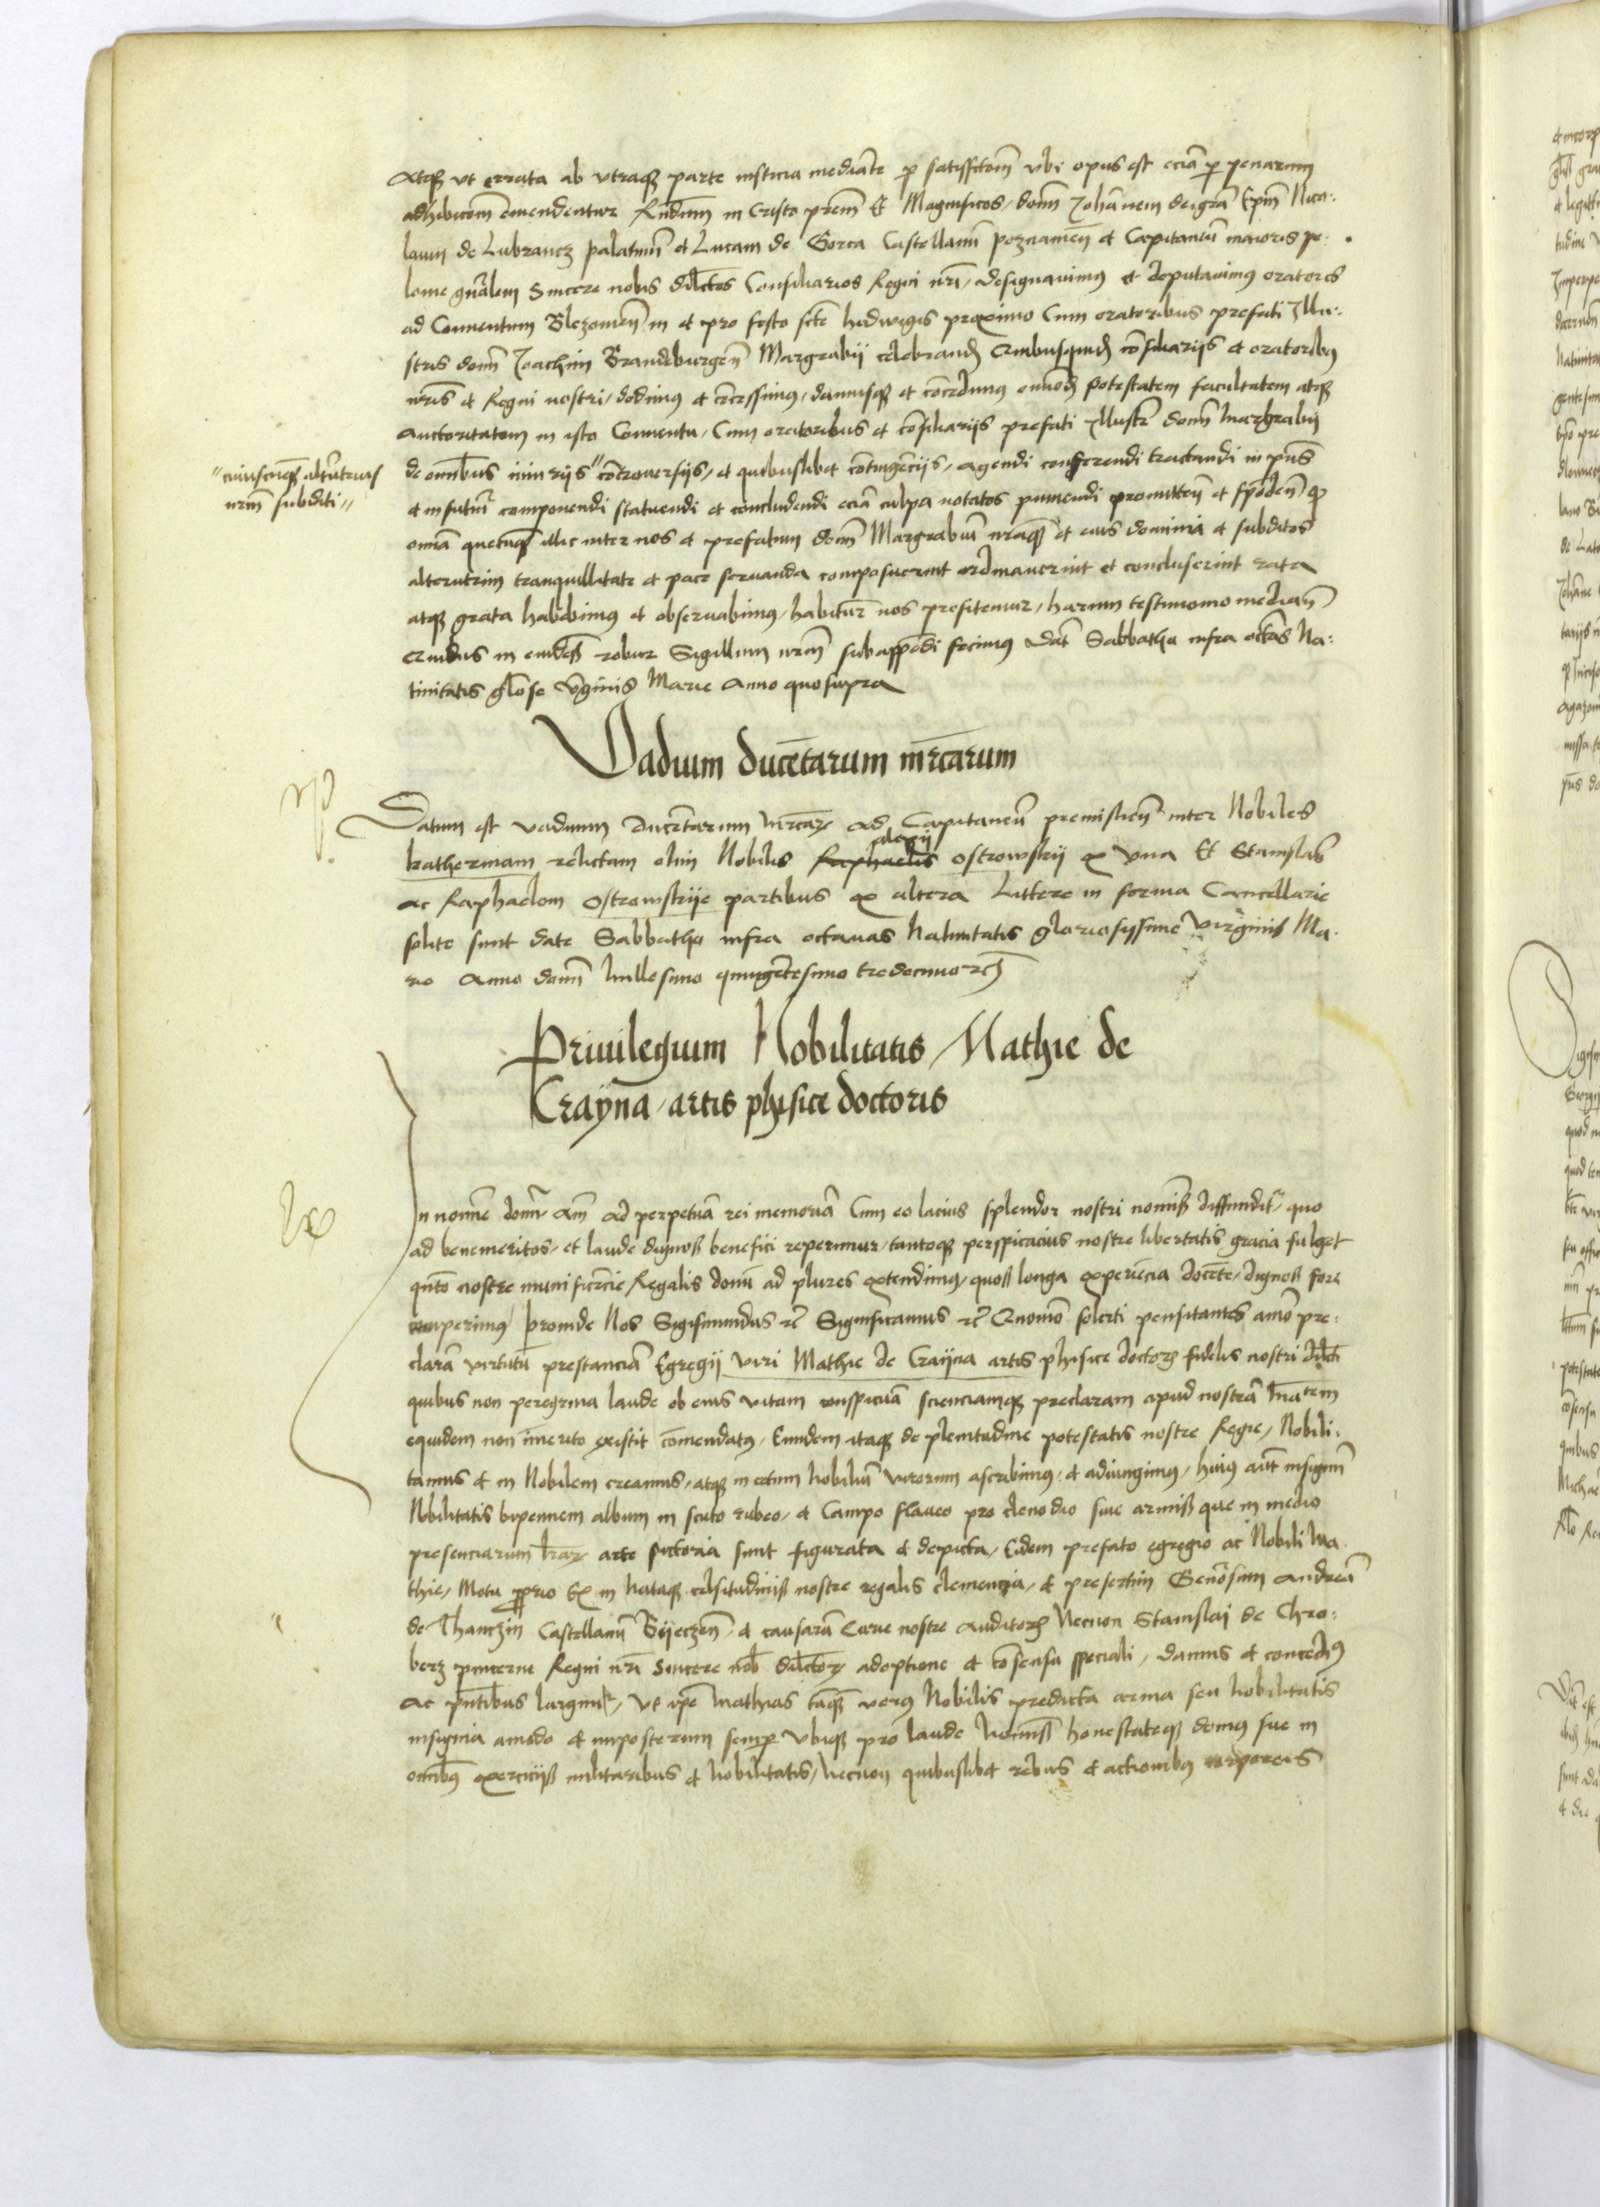 Atq3 ut errata ab utraq3 parte iusticia mediante p satisfctom ubi opus est ecia p penarum
adhibitom emendentur Rndum in Cristo prem Et Magnificos, domi Johannem dei gra Epm Nico:
laum de Lubrancz palatinu et Lucam de Gorca Castellanu poznanien et Capitaneu maioris po:
lonie gnralem Sincere nobis dilctos Consiliarios Regni nri, designavimus et deputavimus oratores
ad Conventum in et pro festo scte hedwigis proximo Cum oratoribus prefati Illu:
stris domi Joachim Brandeburgen Margrabij celebrand Quibusquid consiliarijs et oratoribus
nris et Regni nostri, dedimus et concessimus, damusq3 et concedimus omnod potestatem facultatem atq3
Auctoritatem in isto Conventu, Cum oratoribus et consiliarijs prefati Illustr domi Margrabij
de omnibus iniurijs " controversijs, et quibuslibet contingecijs, agendi conferendi tractandi in pns
" cuiuscuq3 altrutrius
nrum subditi "
et in futur componendi statuendi et concludendi ecia culpa notatos puniendi promitten et sponden q
omia quecuq3 illic inter nos et prefatum dom Margrabiu nraq3 et eius dominia et subditos
alterutrim tranquillitate et pace servanda composuerint ordinaverint et concluserint rata
atq3 grata habebimus et observabimus, habitur nos profitemur, harum testimonio median
Quibus in evides robur Sigillum nrm subappedi fecimus Dat Sabbatho infra octas Na:
tivitatis gliose virginis Marie Anno quo supra
Vadium ducetarum mrcarum
Datum est vadium Ducetarum Mrcar ad Capitaneu premislien inter Nobiles
katherinam relictam olim Nobilis Raphaelis Alexij Ostrowskij ex una Et Stanislau
ac Raphaelem Ostrowskije partibus ex altera Littere in forma Cancellarie
solite sunt date Sabbatho infra octavas Nativitatis gloriosissime virginis Ma:
rie Anno domi Millesimo quingetesimo tredecimo rc
Privilegium Nobilitatis Mathie de
Crayna, artis phisice doctoris
In nomine domi am ad perpetua rei memoria Cum eo lacius splendor nostri nominis diffundit, quo
ad benemeritos, et laude dignos benefici reperimur, tantoq3 perspicacius nostre libertatis gracia fulget
qnto nostre munificencie Regalis donu ad plures extendimus, quos longa experiecia docete, dignos fore
comperimus, proinde Nos Sigismundus rc Significamus rc Quomo solerti pensitantes aio pre:
clara virtutu prestancia Egregij viri Mathie de Crayna artis phisice doctoris fidelis nostri dilcti
quibus non peregrina laude ob eius vitam conspicua scienciamq3 preclaram apud nostra Matem
equidem non imerito existit comendatus, Eundem itaq3 de plenitudine potestatis nostre Regie, Nobili:
tamus et in Nobilem creamus, atq3 in cetum Nobiliu virorum ascribimus, et adiungimus, huius aut insignm
Nobilitatis bipennem album in scuto rubeo, et Campo flaveo pro clenodio sue armis que in medio
presenciarum lrar arte pictoria sunt figurata et depicta, Eidem prefato egregio ac Nobili Ma:
thie, Motu pprio Ex in nataq3 celsitudinis nostre regalis clemencia, et presertim Generosum Andrea
de Thanczin Castellanu Byeczen, et causaru Curie nostre Auditoris Necnon Stanislai de Chro:
berz pincerne Regni nri Sincere nob dilctor adoptione et cosensu speciali, damus et concedimus
ac pntibus largimur, ut ipe Mathias taq3 verus Nobilis predicta arma seu Nobilitatis
insignia amodo et imposterum semper ubiq3 pro laude Nominis honestateq3 domus sue in
omibus exercicijs militaribus et Nobilitatis, Necnon quibuslibet rebus et actionibus corporeis